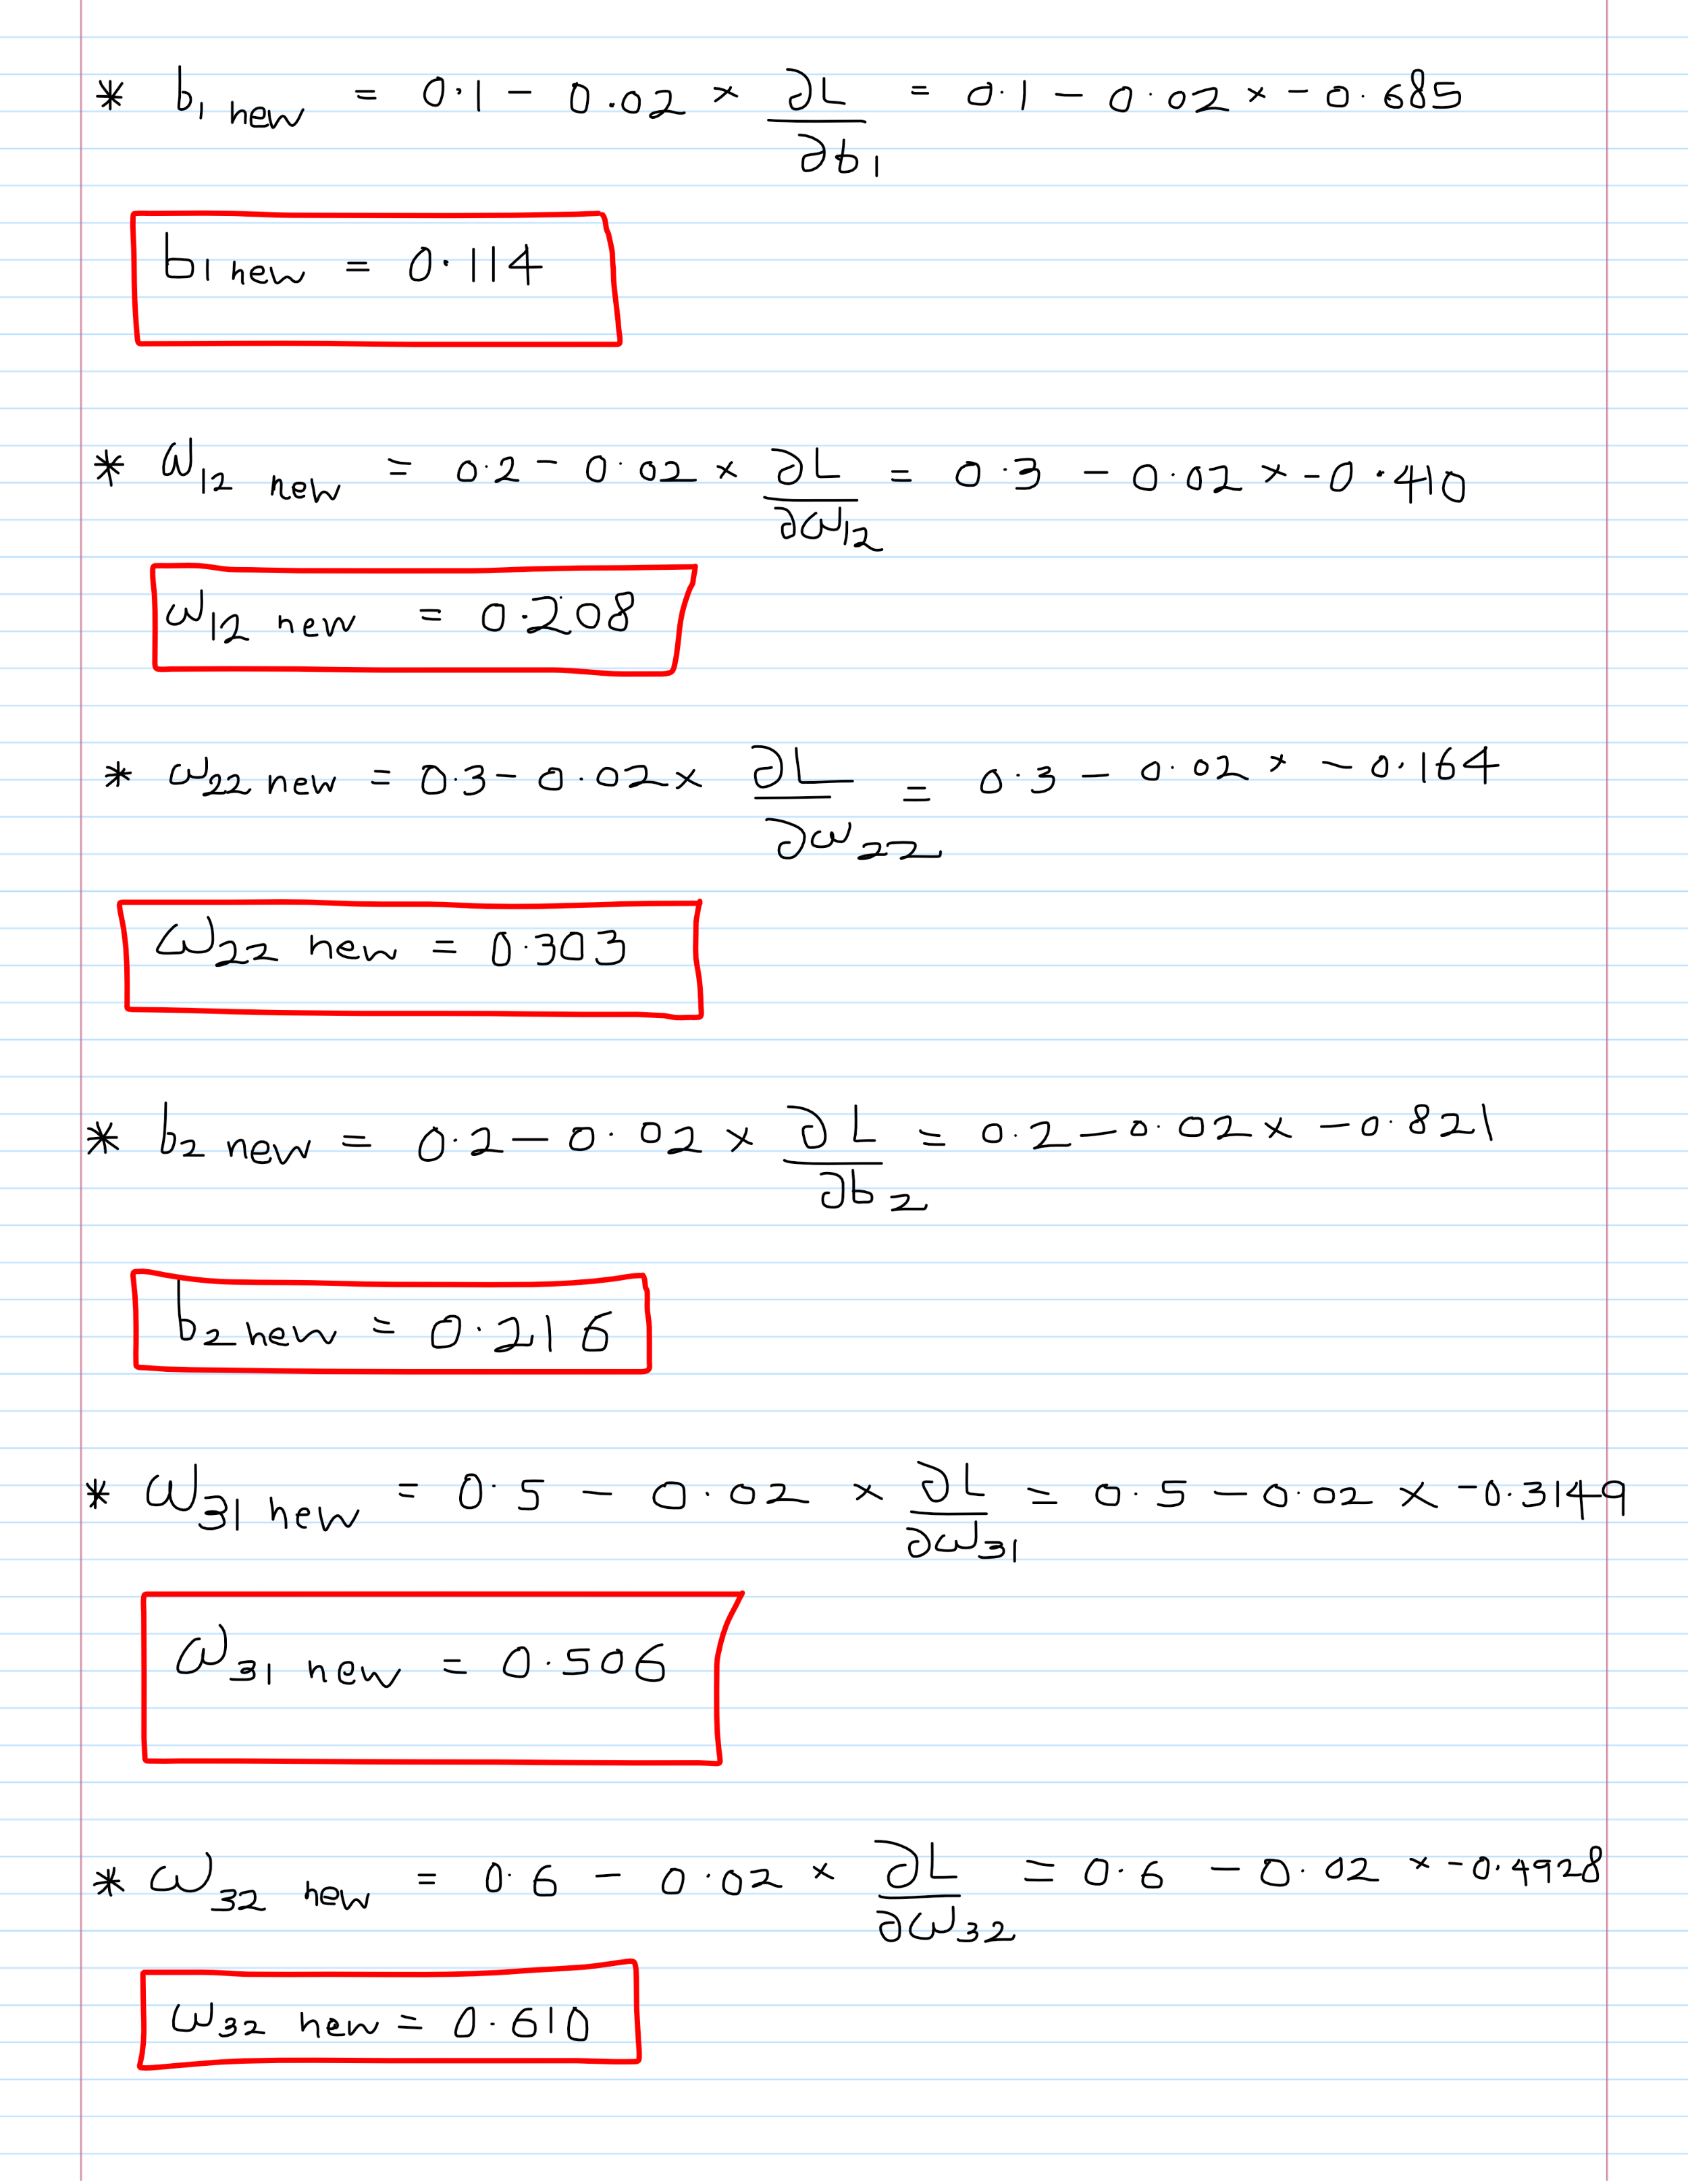 * b₁ new = 0.1 - 0.02 × ∂L/∂b₁ = 0.1 - 0.02 × -0.685
b₁ new = 0.114
* ω₁₂ new = 0.2 - 0.02 × ∂L/∂ω₁₂ = 0.3 - 0.02 × -0.410
ω₁₂ new = 0.208
* ω₂₂ new = 0.3 - 0.02 × ∂L/∂ω₂₂ = 0.3 - 0.02 × -0.164
ω₂₂ new = 0.303
* b₂ new = 0.2 - 0.02 × ∂L/∂b₂ = 0.2 - 0.02 × -0.821
b₂ new = 0.216
* ω₃₁ new = 0.5 - 0.02 × ∂L/∂ω₃₁ = 0.5 - 0.02 × -0.3149
ω₃₁ new = 0.506
* ω₃₂ new = 0.6 - 0.02 × ∂L/∂ω₃₂ = 0.6 - 0.02 × -0.4928
ω₃₂ new = 0.610